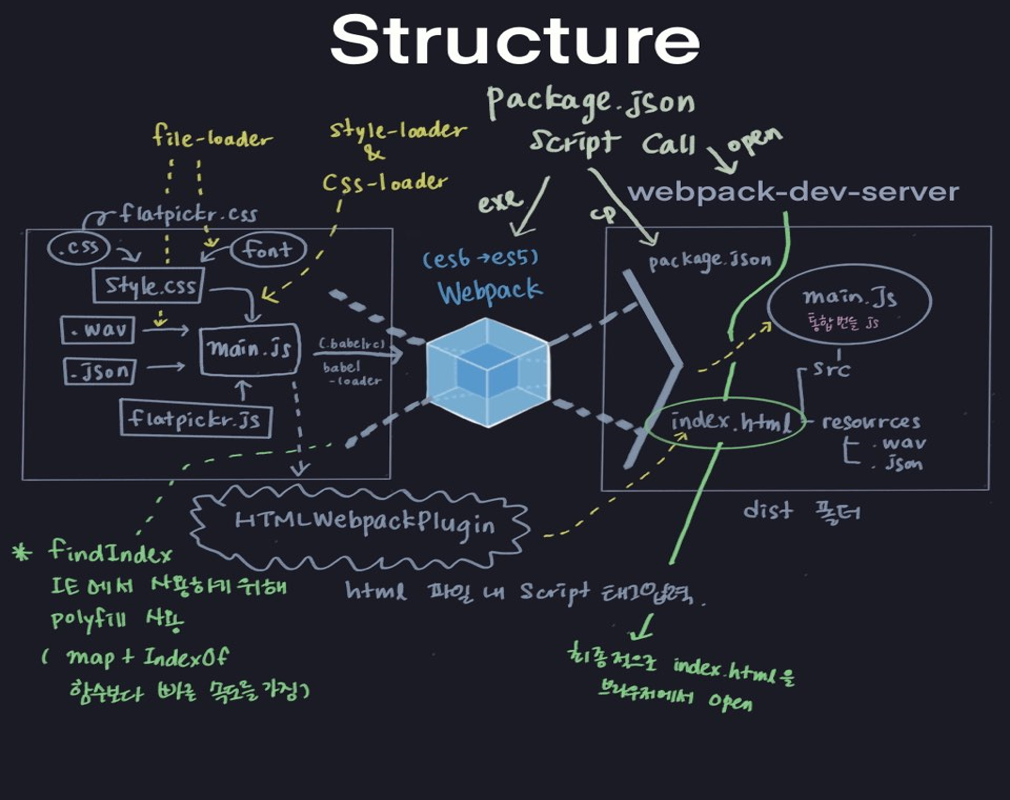 Structure
package.json
Script Call
open
webpack-dev-server
exe
cp
file-loader
style-loader
&
Css-loader
flatpickr.css
.css
font
Style.css
.wav
.json
main.js
flatpickr.js
(.babelrc)
babel
-loader
(es6→es5)
Webpack
package.json
main.Js
통합번들 js
src
index.html
resources
.wav
.json
dist 폴더
HTMLWebpackPlugin
html 파일 내 Script 태그입력.
* findIndex
IE에서 사용하기 위해
polyfill 사용
( map + IndexOf
함수보다 빠른 속도를 가짐)
최종적으로 index.html을
브라우저에서 open